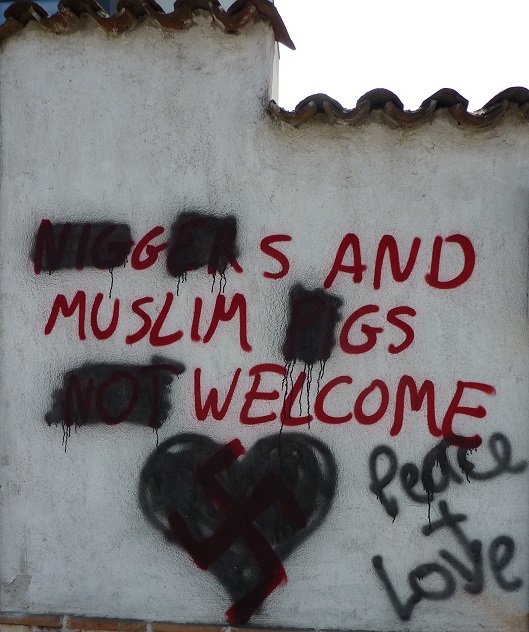 NIGGERS AND
MUSLIM PIGS
NOT WELCOME
Peace
+
Love